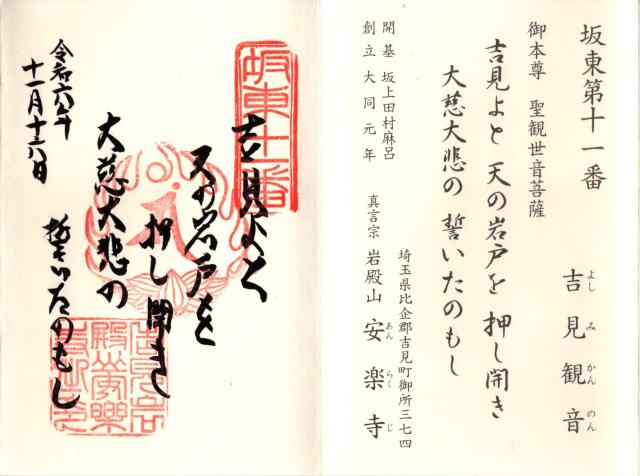 坂東第十一番
吉見観音
よしみかんのん
御本尊 聖観世音菩薩
吉見よと 天の岩戸を 押し開き
大慈大悲の 誓いたのもし
開基 坂上田村麻呂
創立 大同元年
埼玉県比企郡吉見町御所三七四
真言宗 岩殿山 安楽寺
あんらくじ
坂東十一番
吉見よと
天の岩戸を
押し開き
大慈大悲の
誓いたのもし
令和六年
十一月十六日